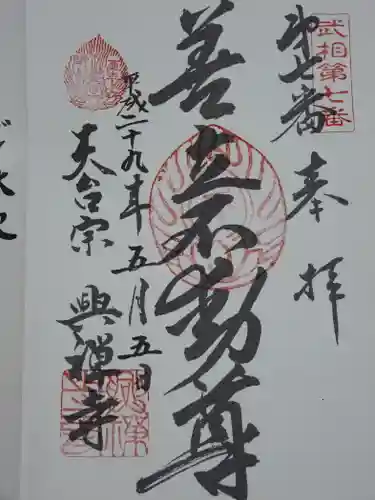 武相第七番
第七番
奉拝
善並不動尊
平成二十九年五月五日
天台宗 興禅寺